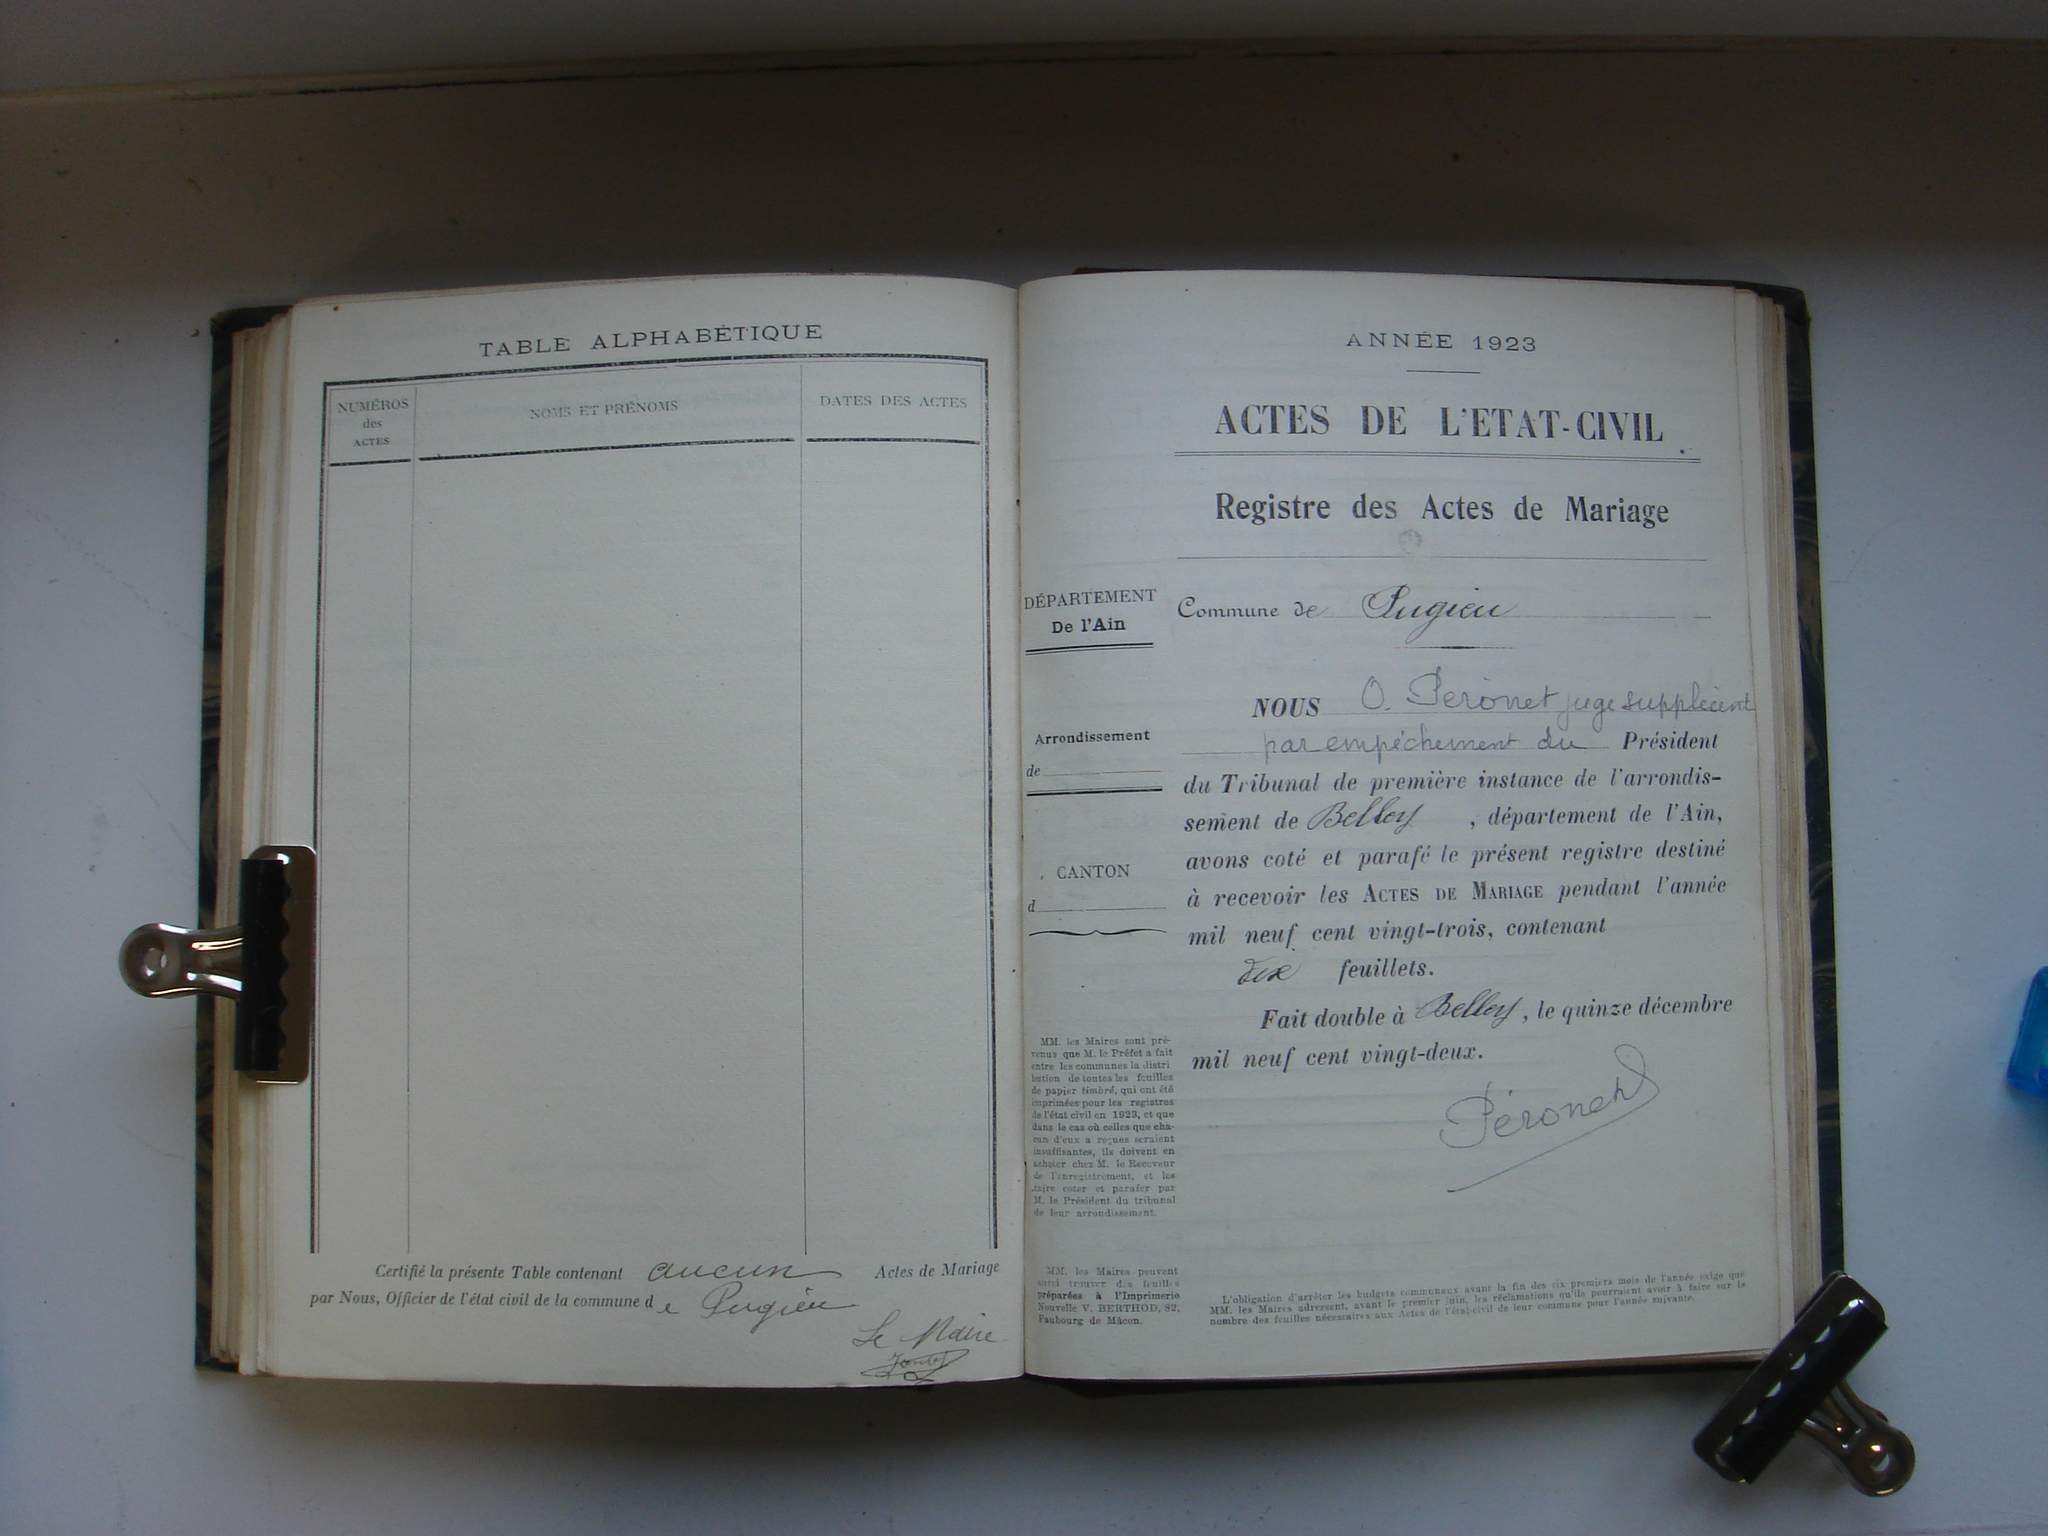 TABLE ALPHABÉTIQUE
NUMÉROS
des
ACTES
NOMS ET PRÉNOMS
DATES DES ACTES
Certifié la présente Table contenant aucun Actes de Mariage
par Nous, Officier de l'état civil de la commune de Pugieu
Le Maire
ANNÉE 1923
ACTES DE L'ETAT-CIVIL
Registre des Actes de Mariage
DÉPARTEMENT
De l'Ain
Commune de Pugieu
Arrondissement
de
CANTON
d
NOUS O. Péronet juge suppléant
par empêchement du Président
du Tribunal de première instance de l'arrondis-
sement de Belley, département de l'Ain,
avons coté et parafé le présent registre destiné
à recevoir les ACTES DE MARIAGE pendant l'année
mil neuf cent vingt-trois, contenant
dix feuillets.
Fait double à Belley, le quinze décembre
mil neuf cent vingt-deux.
Péronet
MM. les Maires sont pré-
venus que M. le Préfet a fait
entre les communes la distri
bution de toutes les feuilles
de papier timbré, qui ont été
imprimées pour les registres
de l'état civil en 1923, et que
dans le cas où celles que cha-
cun d'eux a reçues seraient
insuffisantes, ils doivent en
acheter chez M. le Receveur
de l'enregistrement, et les
faire coter et parafer par
M. le Président du tribunal
de leur arrondissement.
MM. les Maires peuvent
aussi trouver des feuilles
préparées à l'Imprimerie
Nouvelle V. BERTHOD, 82,
Faubourg de Mâcon.
L'obligation d'arrêter les budgets communaux avant la fin des six premiers mois de l'année exige que
MM. les Maires adressent, avant le premier juin, les réclamations qu'ils pourraient avoir à faire sur le
nombre des feuilles nécessaires aux Actes de l'état-civil de leur commune pour l'année suivante.